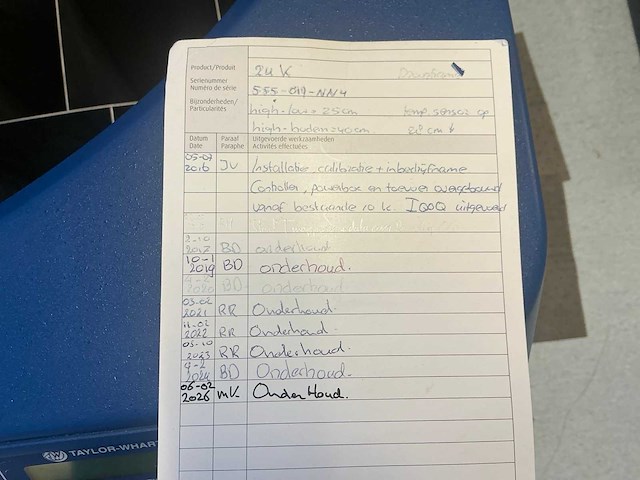 Product/Produit 24 K
Serienummer
Numéro de série 555-019-NN4
Bijzonderheden/ high-low = 25cm temp sensor op
Particularités high-bodem = 40cm
Datum Paraaf Uitgevoerde werkzaamheden
Date Paraphe Activités effectuées
05-07
2016 JV Installatie, calibratie + inbedrijfname
Controller, powerbox en toevoer overgebouwd
vanaf bestaande 10 K. IQOQ uitgevoerd
2-10
2017 BD onderhoud
10-1
2019 BD onderhoud.
BD onderhoud
03-02
2021 RR Onderhoud.
11-02
2022 RR Onderhoud.
03-10
2023 RR Onderhoud.
9-2
2024 BD Onderhoud.
06-02
2026 MK OnderHoud.
TW TAYLOR-WHAR